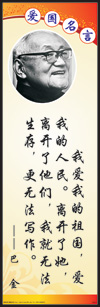 爱国名言
我爱我的祖国，爱
我的人民。离开了她，
离开了他们，我就无法
生存，更无法写作。
——巴金